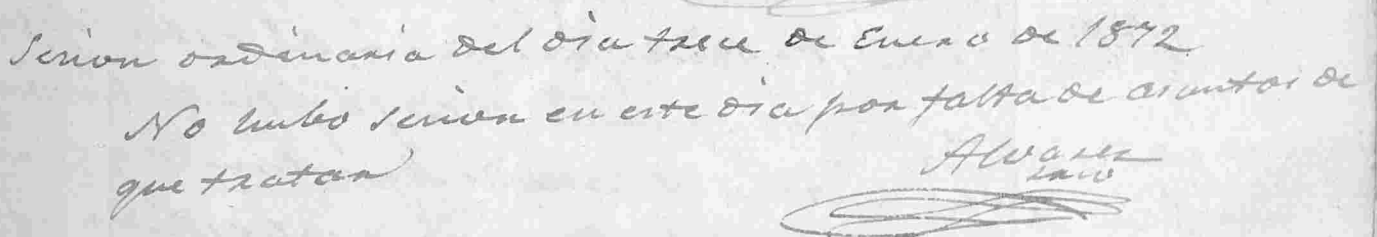 Sesion ordinaria del dia trece de Enero de 1872
No hubo sesion en este dia por falta de asuntos de
que tratar
Alvarez
srio